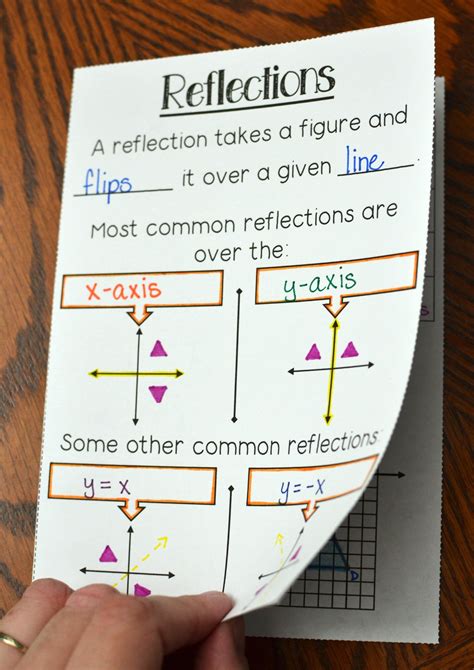 Reflections
A reflection takes a figure and
flips it over a given line.
Most common reflections are
over the:
x-axis
y-axis
Some other common reflections:
y = x
y=-x
D